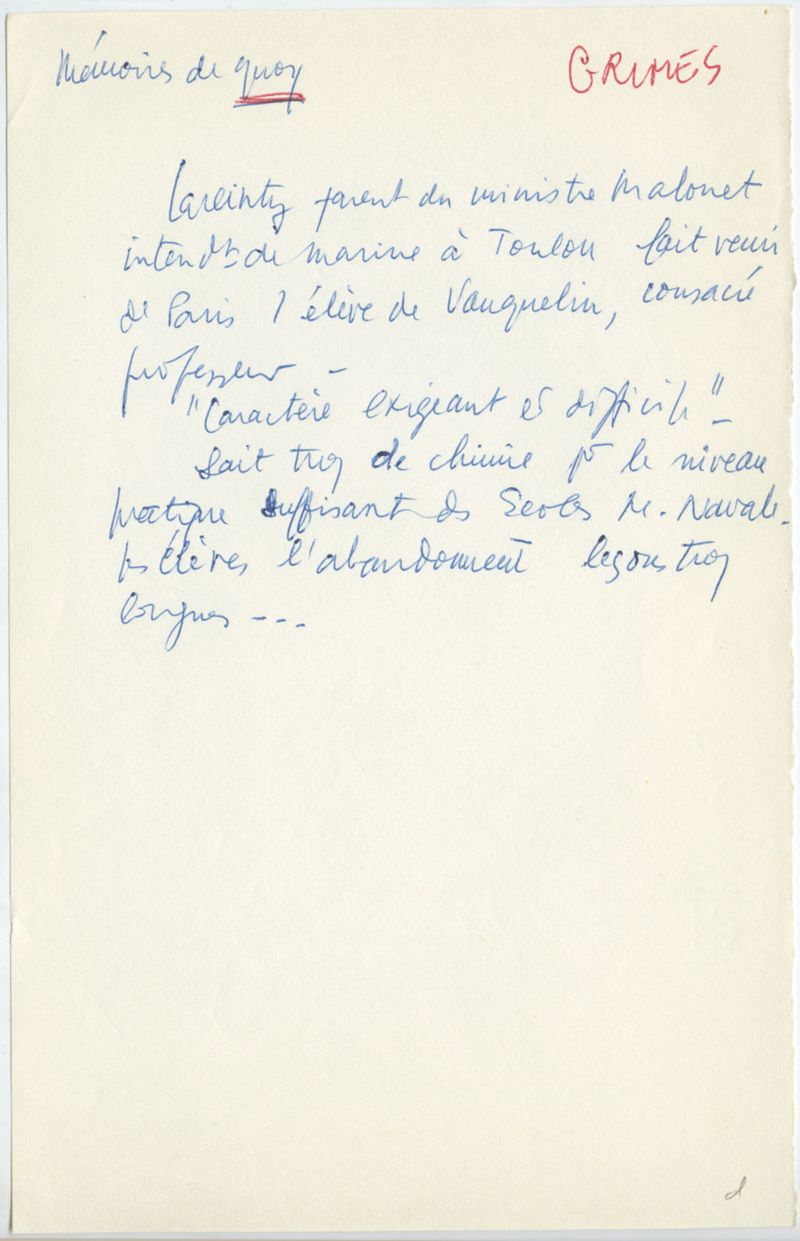 Mémoires de Quoy
GRIMES
Lareinty parent du ministre Malouet
intendt de marine à Toulon fait venir
de Paris l'élève de Vauquelin, consacré
professeur –
"Caractère exigeant et difficile" –
Sait trop de chimie pr le niveau
pratique suffisant ds Ecoles M. Navale.
Les élèves l'abandonnent leçons trop
longues ---